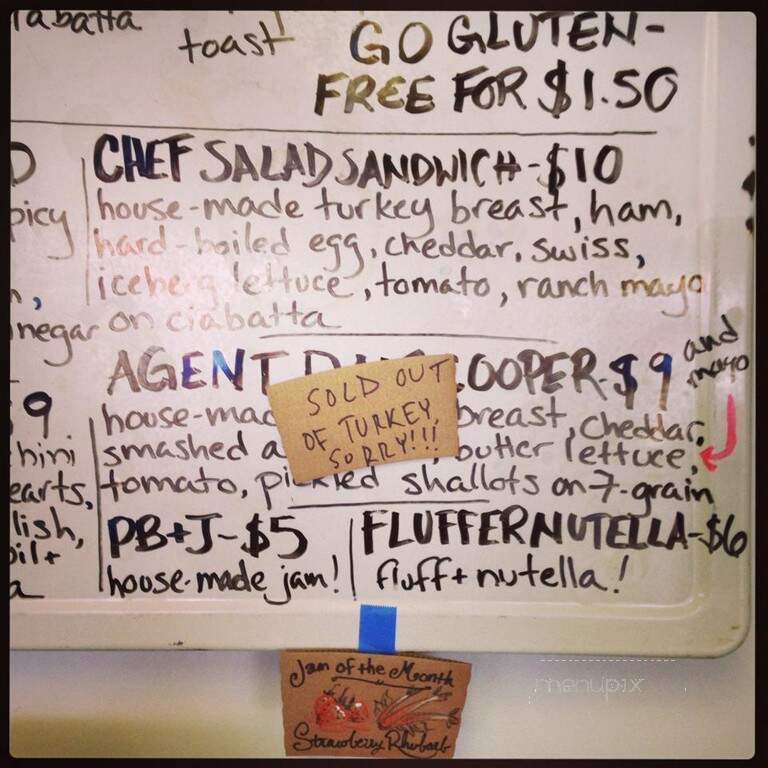 ciabatta
toast
GO GLUTEN-
FREE FOR $1.50
CHEF SALAD SANDWICH-$10
house-made turkey breast, ham,
hard-boiled egg, cheddar, swiss,
iceberg lettuce, tomato, ranch mayo
on ciabatta
picy
negar
AGENT COOPER-$9
and
mayo
SOLD OUT
OF TURKEY,
SORRY!!!
house-mad breast, cheddar,
smashed a butter lettuce,
tomato, pickled shallots on 7-grain
9
hini
earts,
lish,
oil+
a
PB+J-$5
house-made jam!
FLUFFERNUTELLA-$6
fluff+nutella!
Jam of the Month
Strawberry Rhubarb
menupix